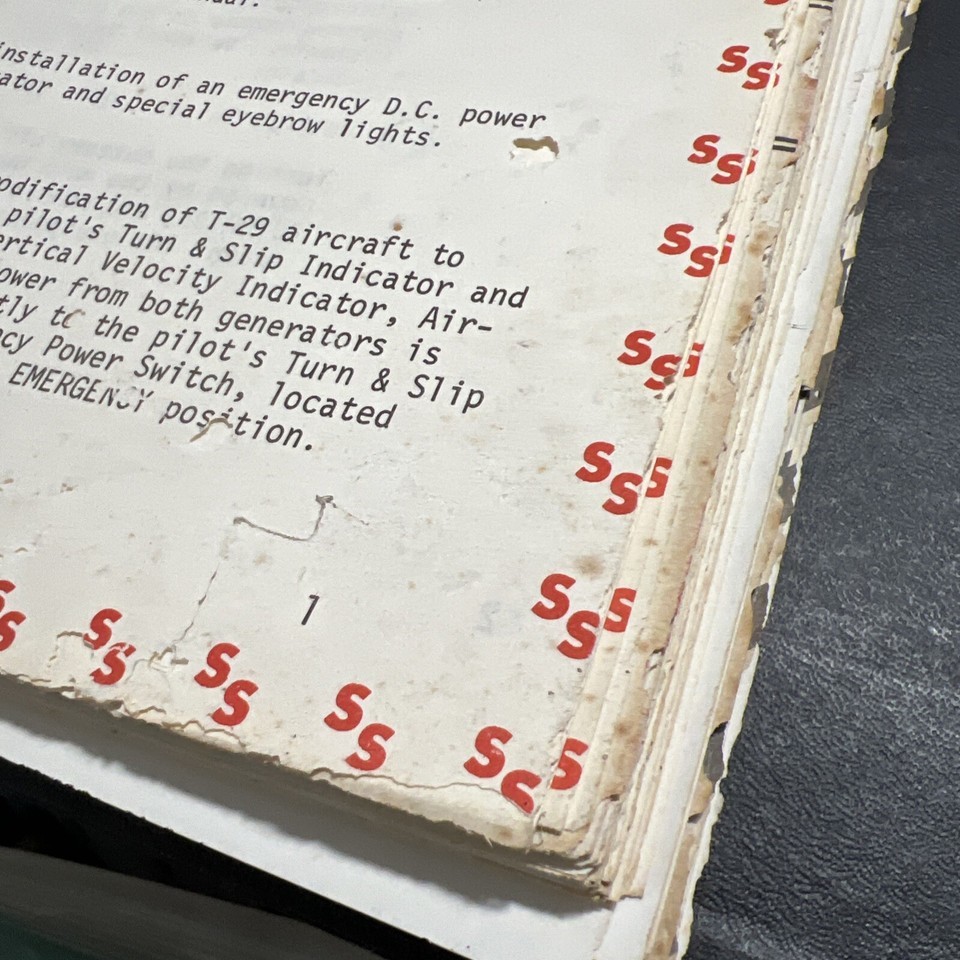 installation of an emergency D.C. power
and special eyebrow lights.
modification of T-29 aircraft to
pilot's Turn & Slip Indicator and
Vertical Velocity Indicator, Air-
power from both generators is
the pilot's Turn & Slip
Power Switch, located
EMERGENCY position.
1
SS
SS
SS
SS
SS
SS
SS
SS
SS
SS